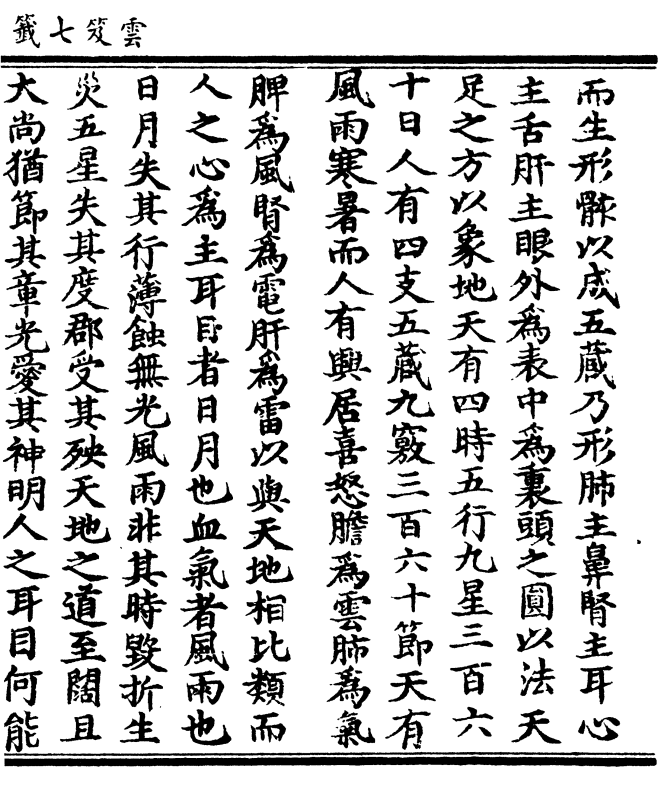 雲笈七籤
而生形骸以成五藏乃形肺主鼻腎主耳心
主舌肝主眼外爲表中爲裏頭之圓以法天
足之方以象地天有四時五行九星三百六
十日人有四支五藏九竅三百六十節天有
風雨寒暑而人有興居喜怒膽爲雲肺爲氣
脾爲風腎爲電肝爲雷以與天地相比類而
人之心爲主耳目者日月也血氣者風雨也
日月失其行薄蝕無光風雨非其時毀折生
災五星失其度郡受其殃天地之道至闊且
大尚猶節其章光愛其神明人之耳目何能